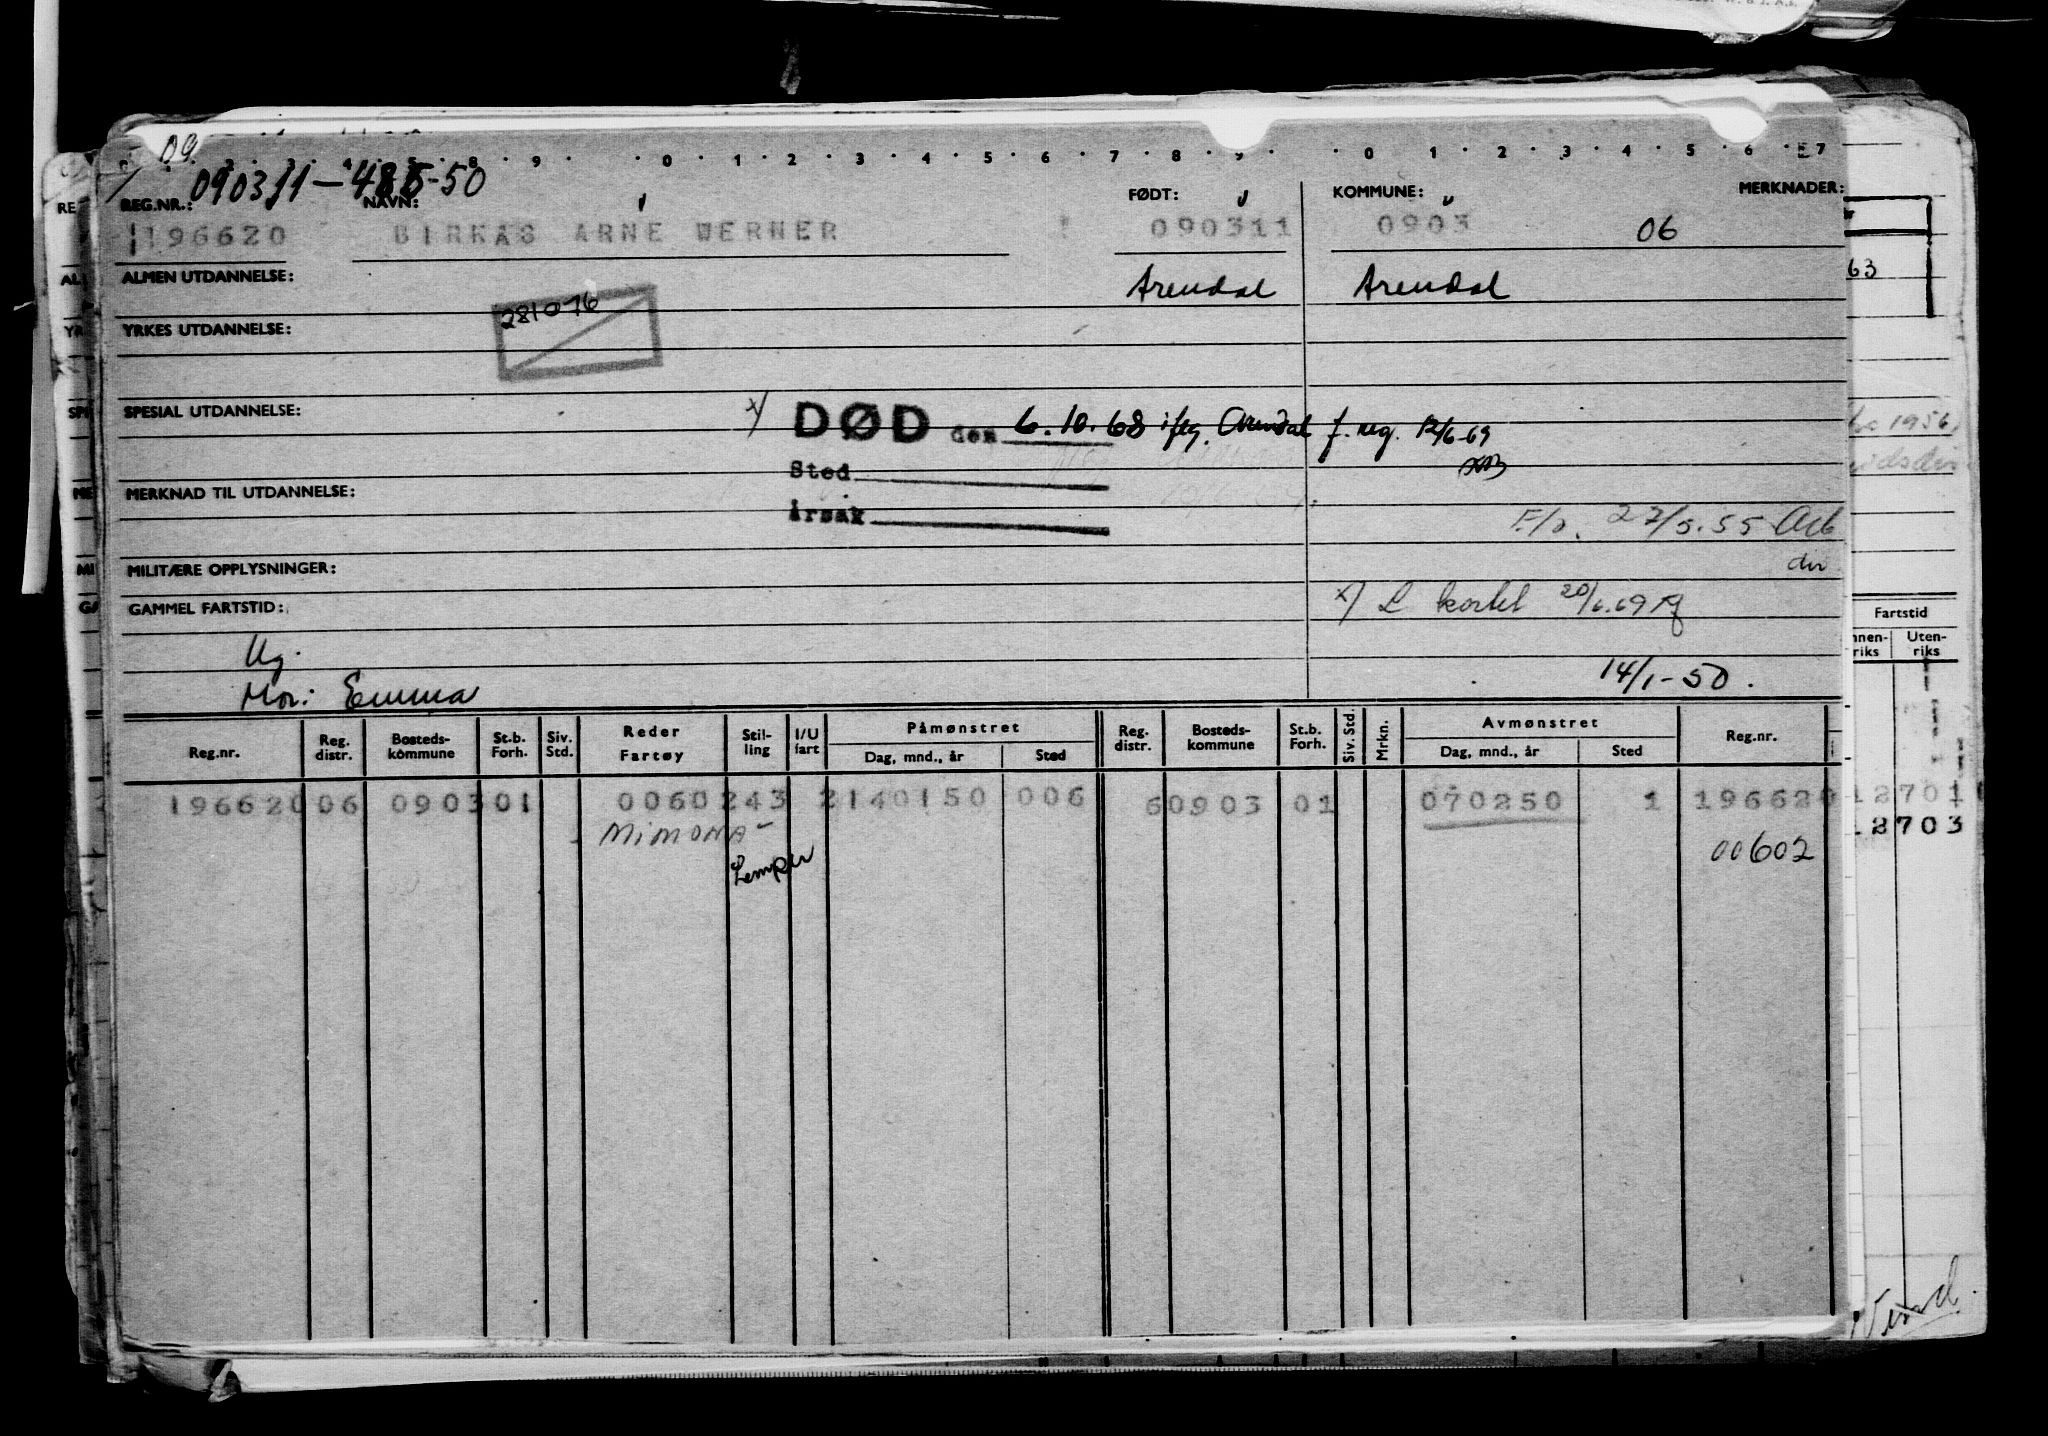 09
0 . . . 9 . . 0 . 1 . 2 . 3 . 4 . 5 . 6 . 7 . 8 . 9 . . 0 . 1 . 2 . 3 . 4 . 5 . 6 . 7
090311-485-50
REG.NR.: NAVN: FØDT: KOMMUNE: MERKNADER:
196620 BIRKAS ARNE WERNER 090311 0903 06
ALMEN UTDANNELSE: Arendal Arendal
281076
YRKES UTDANNELSE:
SPESIAL UTDANNELSE: x/ DØD den 6.10.68 iflg. Arendal f. reg. 12/6-69
Sted
MERKNAD TIL UTDANNELSE:
Årsak
F/o. 27/5.55 Arb
dir
MILITÆRE OPPLYSNINGER:
GAMMEL FARTSTID: x/ L kortet 20/6.69
Ug.
14/1-50.
Mor: Emma
Reg.nr. Reg. distr. Bosteds-kommune St.b. Forh. Siv. Std. Reder Fartøy Stil-ling I/U fart Påmønstret Dag, mnd., år Sted Reg. distr. Bosteds-kommune St.b. Forh. Siv. Std. Mrkn. Avmønstret Dag, mnd., år Sted Reg.nr.
196620 06 0903 01 0060 243 2 140150 006 6 0903 01 070250 1 196620
MIMONA
00602
Lemper
63
1956
Fartstid
Innen-riks Uten-riks
12701
12703
Vend.